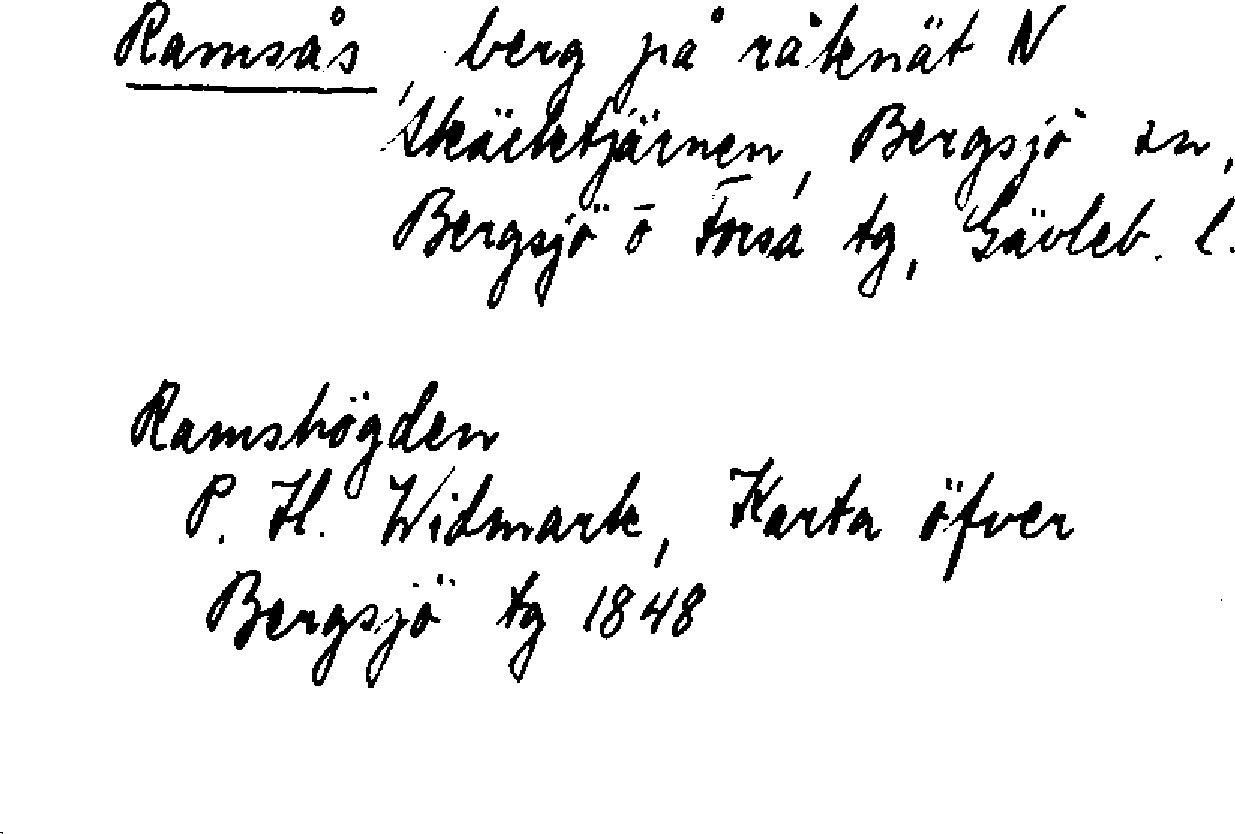 Ramsås, berg på råknät N
Skäcktjärnen, Bergsjö sn,
Bergsjö o Forsa tg, Gävleb. l.
Ramshögden
P. H. Widmark, Karta öfver
Bergsjö tg 1848